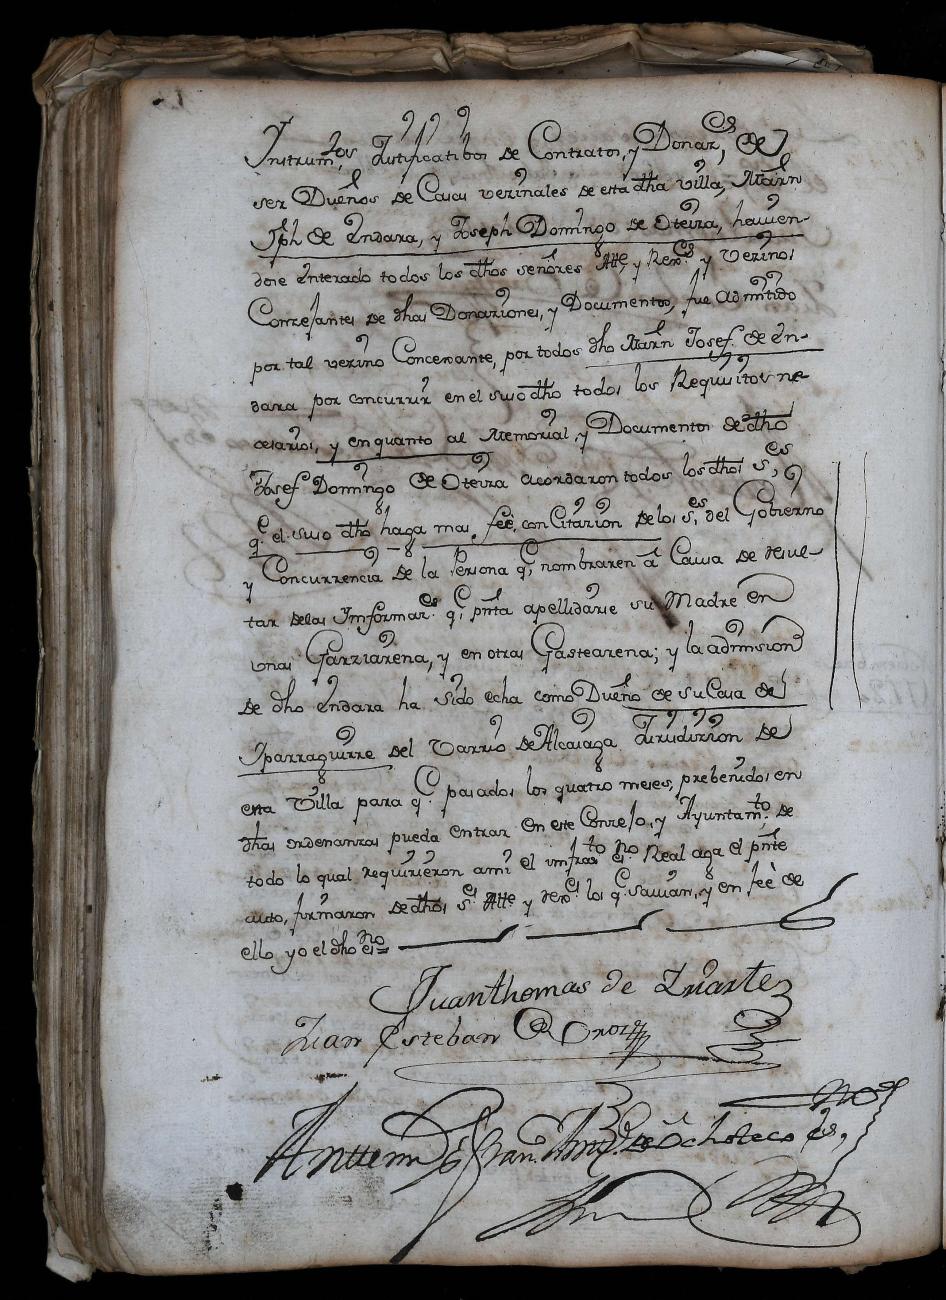 Instrum.tos Justificatibos de Contratos, y Donaz.es de
ser Dueños de Casas vezinales de esta dha villa, Marn
Jph de Endara, y Joseph Domingo de Oteiza, havien-
dose enterado todos los dhos señores Alte, y Rex.es y vezinos
Conzejantes de dhas Donaziones, y Documentos, fue admitido
por tal vezino Concejante, por todos dho Marn Josef de En-
dara por concurrir en el suso dho todos los Requisitos ne-
cesarios, y en quanto al Memorial, y Documentos de dho
Josef Domingo de Oteiza acordaron todos los dhos s.es
q.e el suso dho haga mas fee, con Citazion de los s.es del Gobierno
y Concurrencia de la Persona q.e nombraren â Causa de resul-
tar de las Ymformaz.es q.e pnta apellidarse su Madre en
unas Garziarena, y en otras Gastearena; y la admision
de dho Endara ha sido echa como Dueño de su Casa de
Yparraguirre del Varrio de Alcaiaga Jurisdizion de
esta Villa para q.e pasados los quatro meses, prebenidos en
dhas ordenanzas pueda entrar en este Conzejo, y Ayuntam.to de
todo lo qual requirieron a mi el imfras.to es.no Real aga el pnte
auto, firmaron de dhos s.es Alte y rex.es los q.e savian, y en feè de
ello yo el dho es.no
Juan thomas de Iriarte
Juan Esteban de Oroz
Antte mi Juan Antt.o de Ochoteco es.no